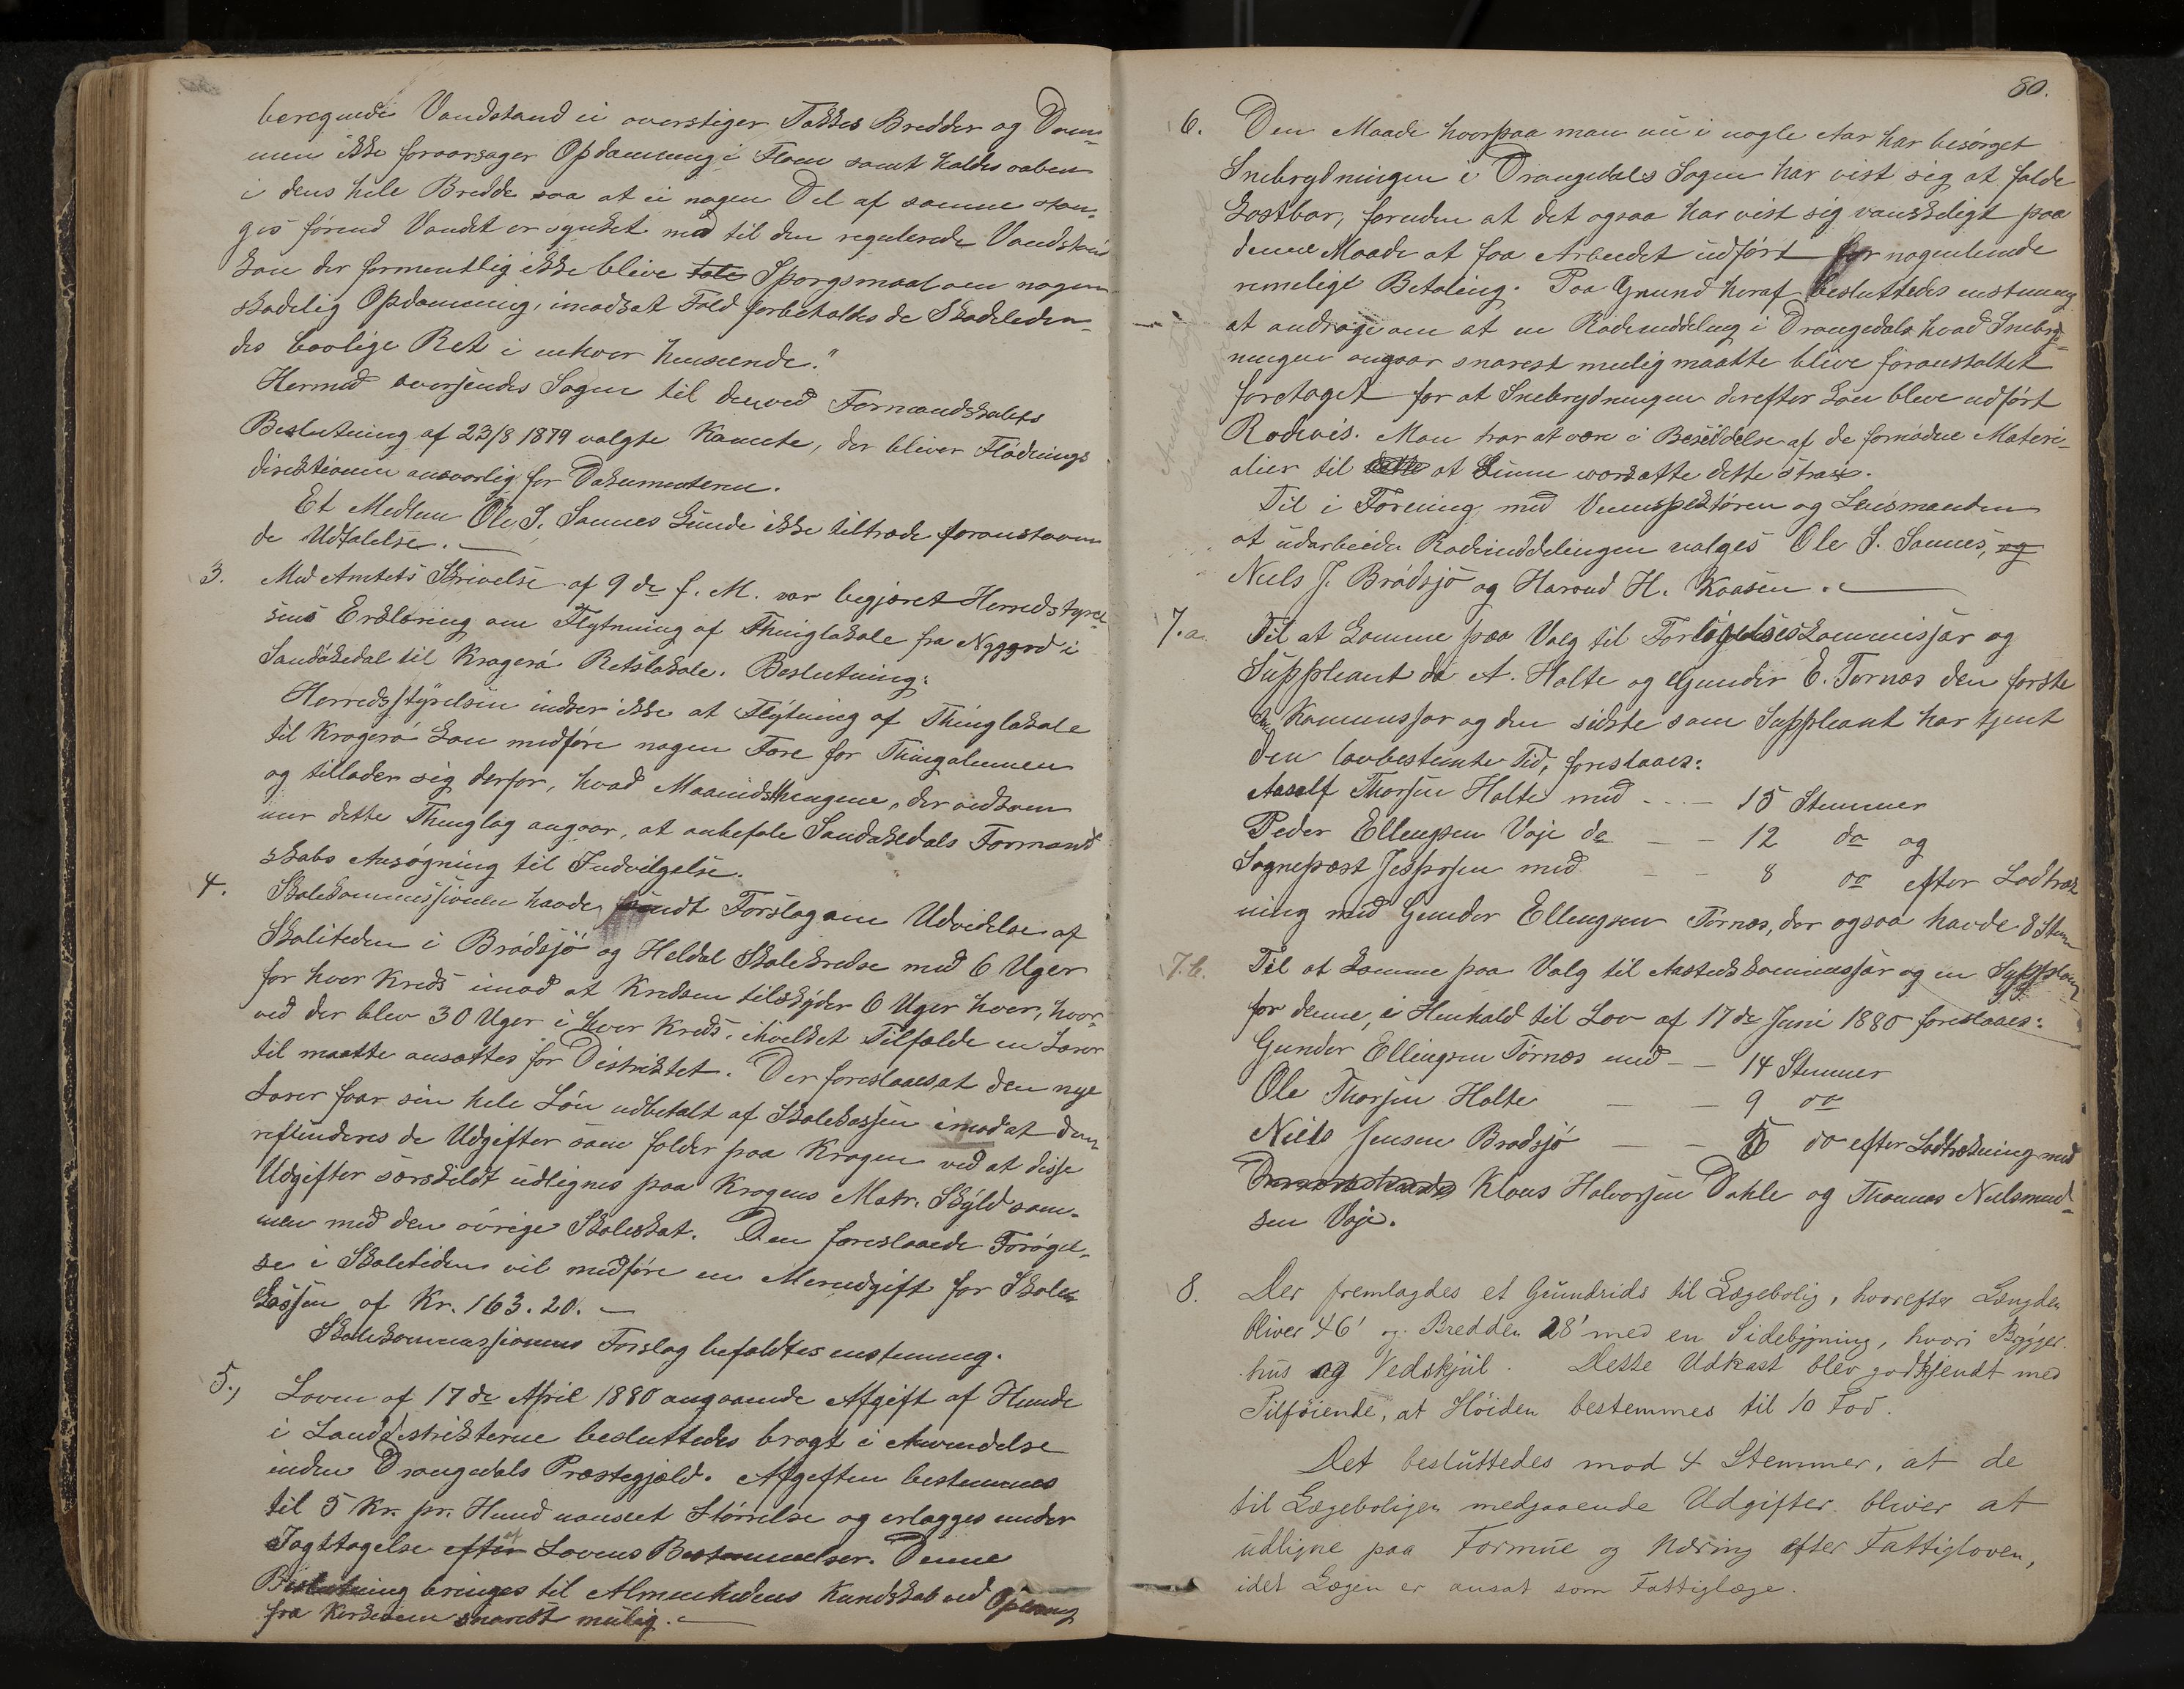 beregnede Vandstand ei overstiger Tokkes Bredder og Dam-
men ikke foraarsager Opdæmning i Floen samt holdes aaben
i dens hele Bredde saa at ei nogen Del af samme stæn-
ges førend Vandet er synket ned til den regulerede Vandstand
kan der formentlig ikke blive tale Spørgsmaal om nogen
skadelig Opdæmning, imodsat Fald forbeholdes de Skadeliden-
des lovlige Ret i enhver henseende."
Hermed oversendes Sagen til den ved Formandskabets
Beslutning af 23/8 1879 valgte Komite, der bliver Flødnings
direktionen ansvarlig for Dokumenterne.
Et Medlem Ole S. Sannes kunde ikke tiltræde foranstaaen
de Udtalelse.
3. Med Amtets Skrivelse af 9de f. M. var begjæret Herredstyrel-
sens Erklæring om Flytning af Thinglokale fra Nygaard i
Sandøkedal til Kragerø Retslokale. Beslutning:
Herredsstyrelsen indser ikke at Flytning af Thinglokale
til Kragerø kan medføre nogen Fare for Thingalmuen
og tillader sig derfor, hvad Maanedsthingene, der vedkom
mer dette Thinglag angaar, at anbefale Sandøkedals Formand
skabs Ansøgning til Indvilgelse.
4. Skolekommissionen havde sendt Forslag om Udvidelse af
Skoletiden i Brødsjø og Heldal Skolekredse med 6 Uger
for hver Kreds imod at Kredsen tilskyder 6 Uger hver, hvor-
ved der blev 30 Uger i hver Kreds, ihvilket Tilfælde en Lærer
til maatte ansættes for Distriktet. Der foreslaaes at den nye
Lærer faar sin hele Løn udbetalt af Skolekassen imod at den
refunderes de Udgifter som falder paa Kragen ved at disse
Udgifter særskildt udlignes paa Kragens Matr. Skyld sam-
men med den øvrige Skoleskat. Den foreslaaede Forøgel-
se i Skoletiden vil medføre en Merudgift for Skole
kassen af Kr. 163.20.
Skolekommissionens Forslag befaldtes enstemmig.
5., Loven af 17de April 1880 angaaende Afgift af Hunde
i Landdistrikterne besluttedes bragt i Anvendelse
inden Drangedals Præstegjæld. Afgiften bestemmes
til 5 Kr. pr. Hund uanseet Størrelse og erlægges under
Iagttagelse efter af Lovens Bestemmelser. Denne
Beslutning bringes til Almenhedens Kundskab ved Oplæsning
fra Kirkerne snarest mulig.
80.
6. Den Maade hvorpaa man nu i nogle Aar har besørget
Snebrydningen i Drangedals Sogn har vist sig at falde
kostbar, foruden at det ogsaa har vist sig vanskeligt paa
denne Maade at faa Arbeidet udført for nogenlunde
rimelige Betaling. Paa Grund heraf besluttedes enstemmig
at andrage om at en Rodeinddeling i Drangedal hvad Snebryd-
ningen angaar snarest mulig maatte blive foranstaltet
foretaget for at Snebrydningen derefter kan blive udført
Rodevis. Man tror at være i Besiddelse af de fornødne Materi-
alier til dette at kunne iværksætte dette strax.
Til i Forening med Veiinspektøren og Lensmanden
at udarbeide Rodeinddelingen valges Ole S. Sannes, og
Niels J. Brødsjø og Havoud H. Kaasen.
7.a. Til at komme paa Valg til Forligelseskommissær og
Suppleant da A. Holte og Gunder E. Tørnes den første
som Kommissær og den sidste som Suppleant har tjent
den lovbestemte Tid, foreslaaes:
Aasolf Thorsen Holte med - - - 15 Stemmer
Peder Ellingsen Voje do - - 12 do og
Sogneprest Jespersen med - - 8 do efter Lodtræk
ning med Gunder Ellingsen Tørnes, der ogsaa havde 8 Stem
7.b. Til at komme paa Valg til Aastedskommissær og en Suppleant
for denne, i Henhold til Lov af 17de Juni 1880 foreslaaes:
Gunder Ellingsen Tørnes med - - 14 Stemmer
Ole Thorsen Holte - - 9 do
Niels Jensen Brødsjø - - 5 do efter Lodtrækning med
Klaus Halvorsen Dahle og Thomas Nielsmand-
sen Voje.
8. Der fremlagdes et Grundrids til Lægebolig, hvorefter Længden
bliver 46' og Bredden 28' med en Sidebygning, hvori Brygger-
hus og Vedskjul. Dette Udkast blev godkjendt med
Tilføiende, at Høiden bestemmes til 10 Fod.
Det besluttedes mod 4 Stemmer, at de
til Lægeboligen medgaaende Udgifter bliver at
udligne paa Formue og Næring efter Fattigloven,
idet Lægen er ansat som Fattiglæge.